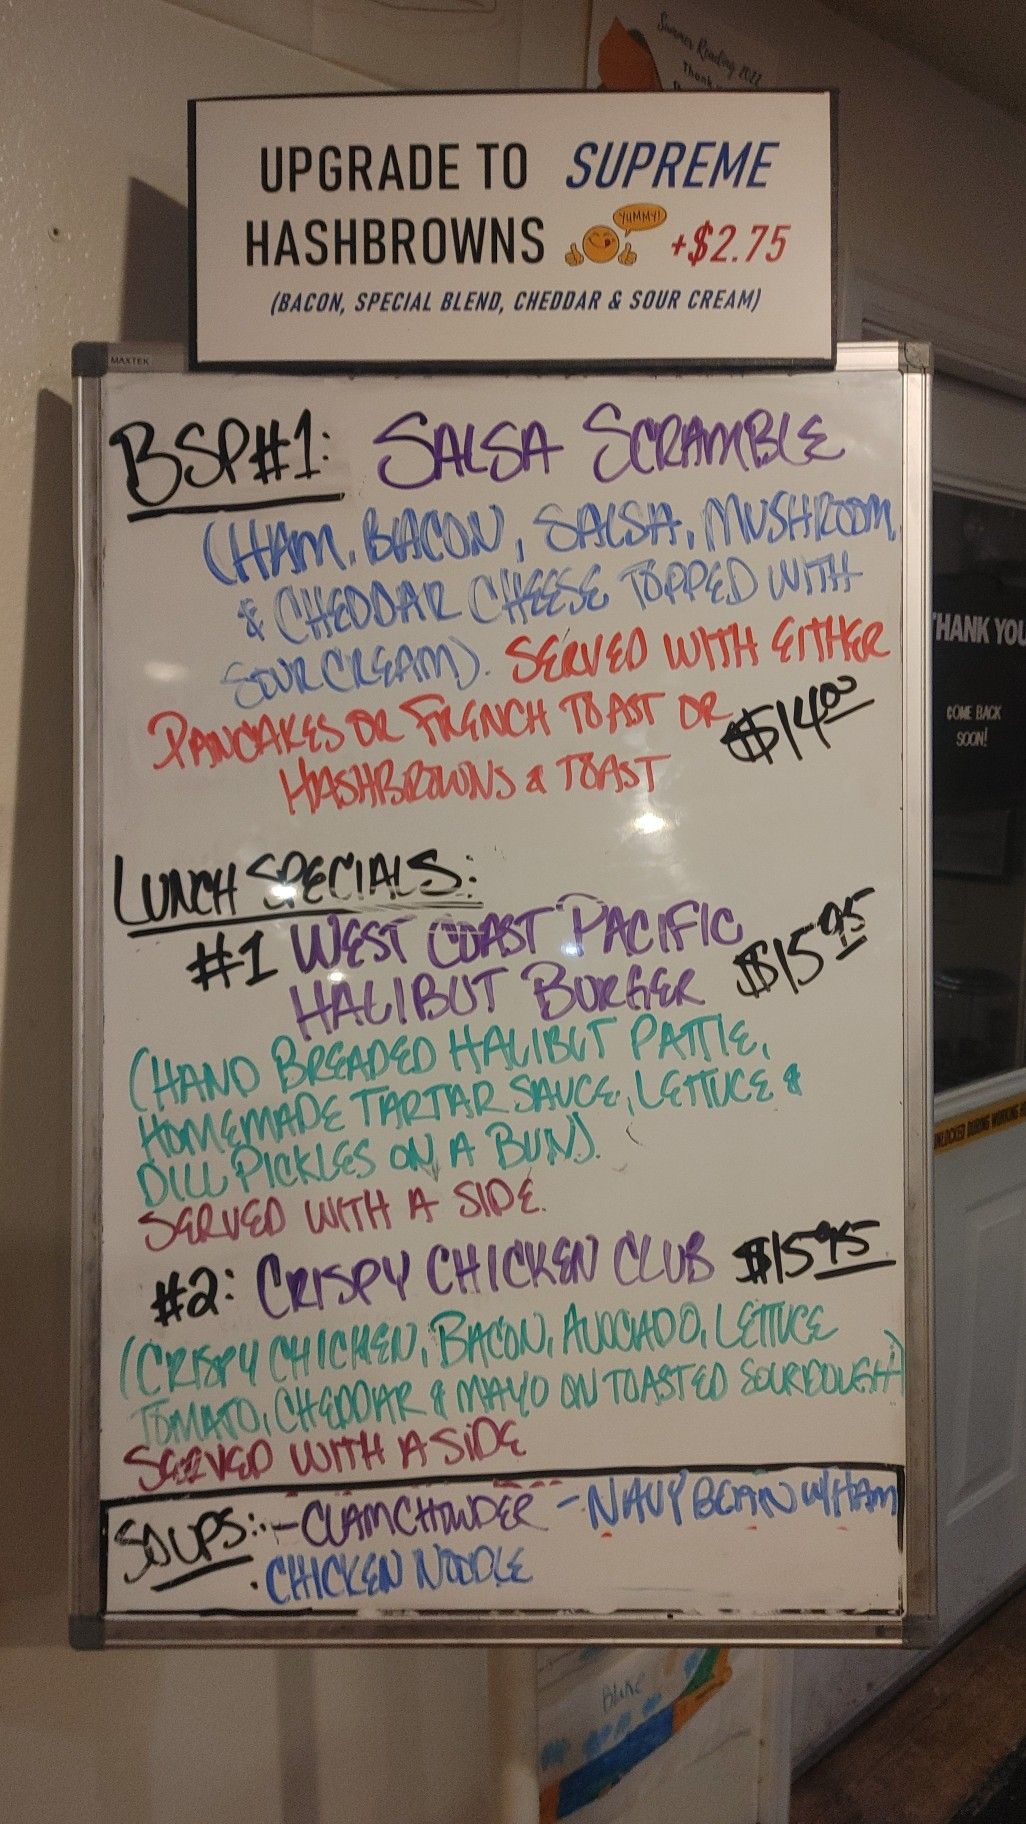 Summer Reading 2022
Thank
UPGRADE TO SUPREME
HASHBROWNS YUMMY! +$2.75
(BACON, SPECIAL BLEND, CHEDDAR & SOUR CREAM)
MAXTEK
BSP#1: SALSA SCRAMBLE
(HAM, BACON, SALSA, MUSHROOM,
& CHEDDAR CHEESE TOPPED WITH
SOUR CREAM). SERVED WITH EITHER
PANCAKES OR FRENCH TOAST OR $14.00
HASHBROWNS & TOAST
LUNCH SPECIALS:
#1 WEST COAST PACIFIC
HALIBUT BURGER $15.95
(HAND BREADED HALIBUT PATTIE,
HOMEMADE TARTAR SAUCE, LETTUCE &
DILL PICKLES ON A BUN).
SERVED WITH A SIDE.
#2: CRISPY CHICKEN CLUB $15.95
(CRISPY CHICKEN, BACON, AVOCADO, LETTUCE
TOMATO, CHEDDAR & MAYO ON TOASTED SOURDOUGH)
SERVED WITH A SIDE
SOUPS: - CLAM CHOWDER - NAVY BEAN W/HAM
• CHICKEN NOODLE
THANK YOU
COME BACK
SOON!
UNLOCKED DURING WORKING
Blake